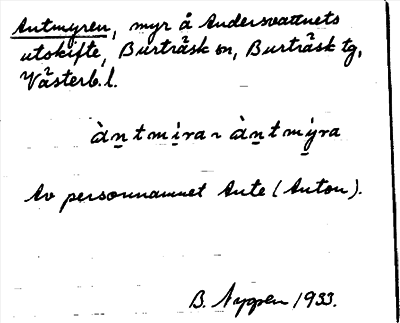 Antmyren, myr å Andersvattnets
utskifte, Burträsk sn, Burträsk tg,
Västerb. l.
àn̠tmi̠ra ~ àn̠tmý̠ra
Av personnamnet Ante (Anton).
B. Nyggen 1933.